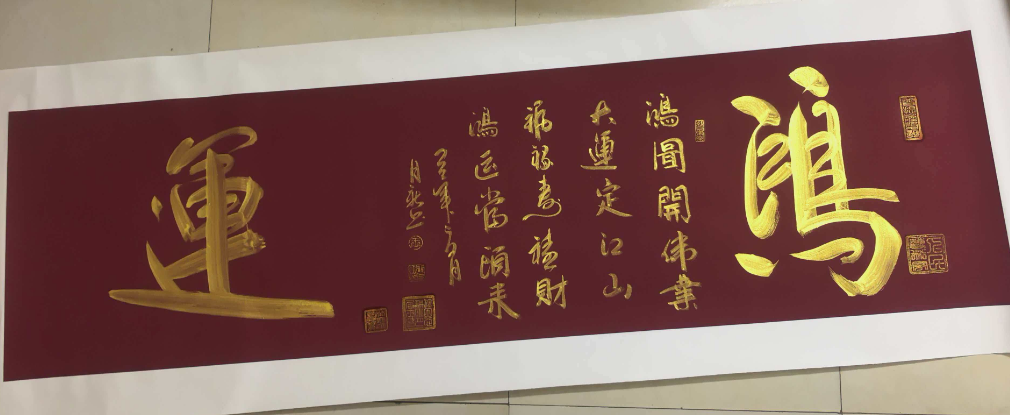 鴻
鴻圖開偉業
大運定江山
福祿壽禧財
鴻运當頭来
運